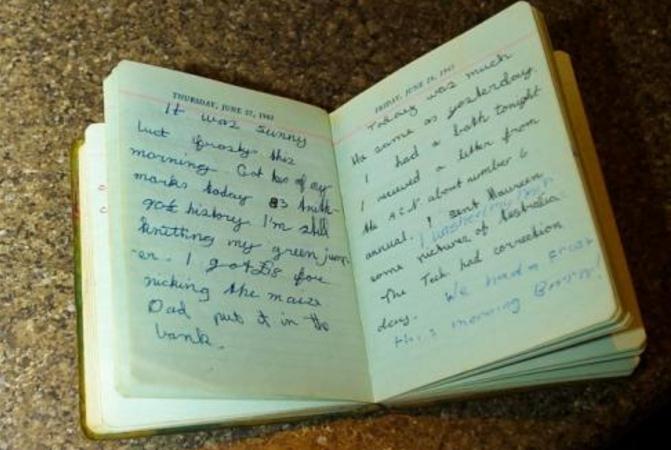 THURSDAY, JUNE 27, 1963
It was sunny
but frosty this
morning. Got two of my
marks today 83 Arith-
90% history I'm still
knitting my green jump-
-er. I got £18 for
picking the maize
Dad put it in the
bank.
FRIDAY, JUNE 28, 1963
Today was much
the same as yesterday.
I had a bath tonight
I received a letter from
the A.C.N about number 6
annual. I sent Maureen
I washed my hair
some pictures of Australia
The Tech had correction
day. We had a frost
this morning Brrrr!